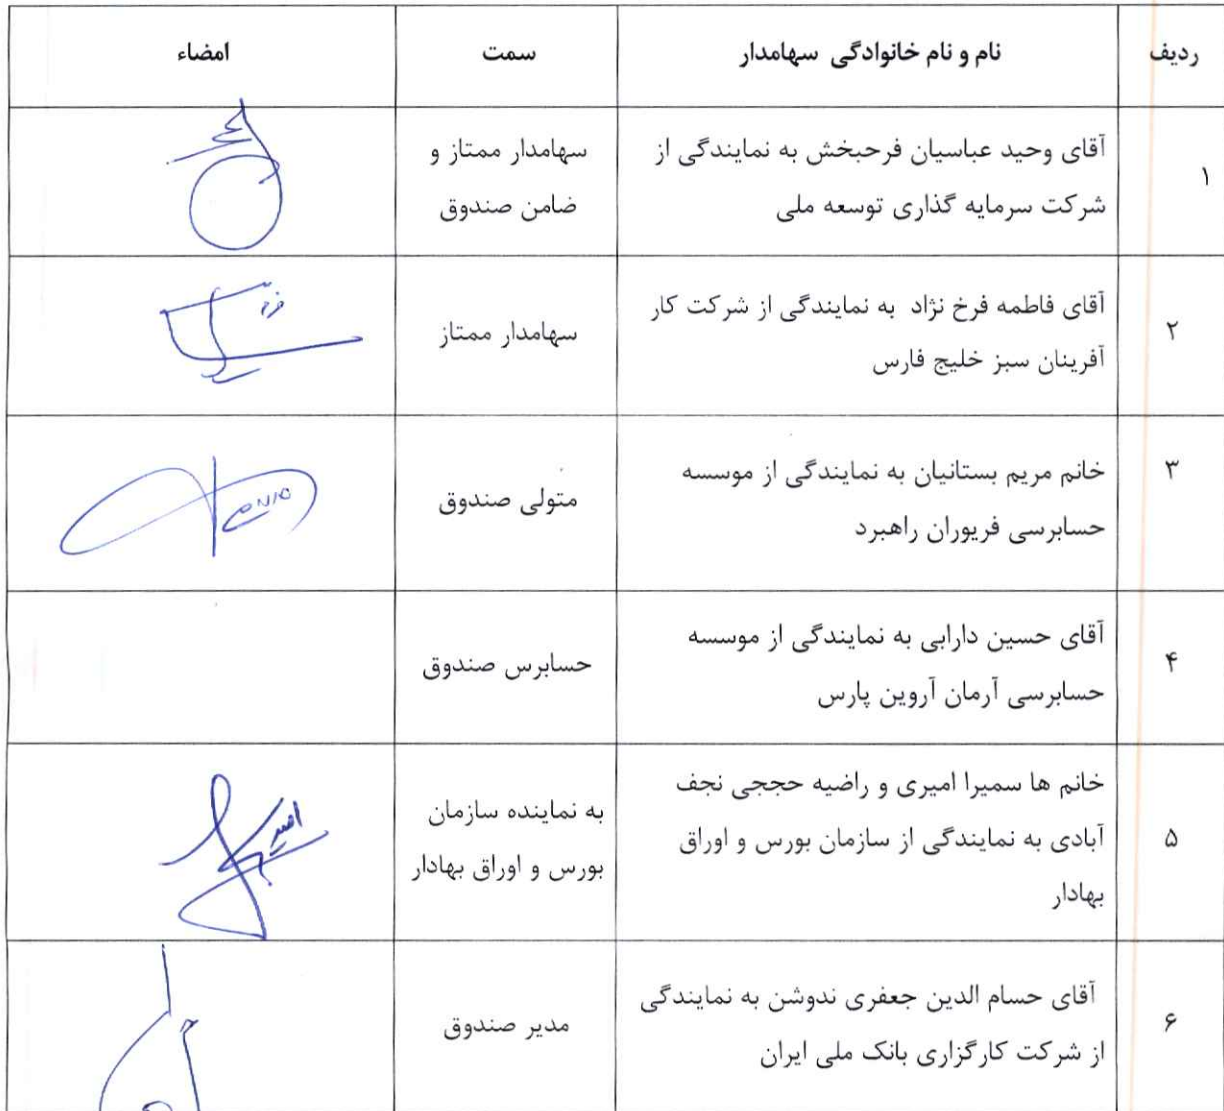 ردیف
نام و نام خانوادگی سهامدار
سمت
امضاء
۱
آقای وحید عباسیان فرحبخش به نمایندگی از
شرکت سرمایه گذاری توسعه ملی
سهامدار ممتاز و
ضامن صندوق
۲
آقای فاطمه فرخ نژاد به نمایندگی از شرکت کار
آفرینان سبز خلیج فارس
سهامدار ممتاز
۳
خانم مریم بستانیان به نمایندگی از موسسه
حسابرسی فریوران راهبرد
متولی صندوق
۴
آقای حسین دارابی به نمایندگی از موسسه
حسابرسی آرمان آروین پارس
حسابرس صندوق
۵
خانم ها سمیرا امیری و راضیه حججی نجف
آبادی به نمایندگی از سازمان بورس و اوراق
بهادار
به نماینده سازمان
بورس و اوراق بهادار
۶
آقای حسام الدین جعفری ندوشن به نمایندگی
از شرکت کارگزاری بانک ملی ایران
مدیر صندوق